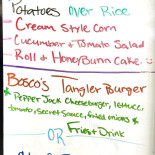 Potatoes over Rice
- Cream Style Corn
- Cucumber & Tomato Salad
- Roll & Honey Bunn Cake
Bosco's Tangler Burger
* Pepper Jack Cheeseburger, lettuce,
tomato, Secret Sauce, fried onions &
Fries & Drink
OR